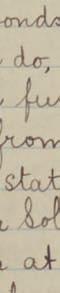 onds
do,
fu
from
stat
Sol
at